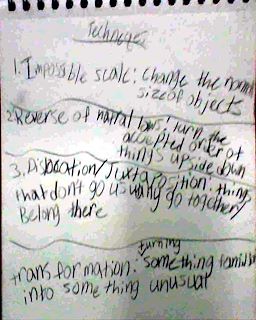 Techniques
1. Impossible scale: change the normal
size of objects
2. Reverse of natral laws: turn the
accepted order of
things upside down
3. Dislocation/Juxtaposition: things
that don't go usually go together/
Belong there
turning
transformation: something familiar
into something unusual